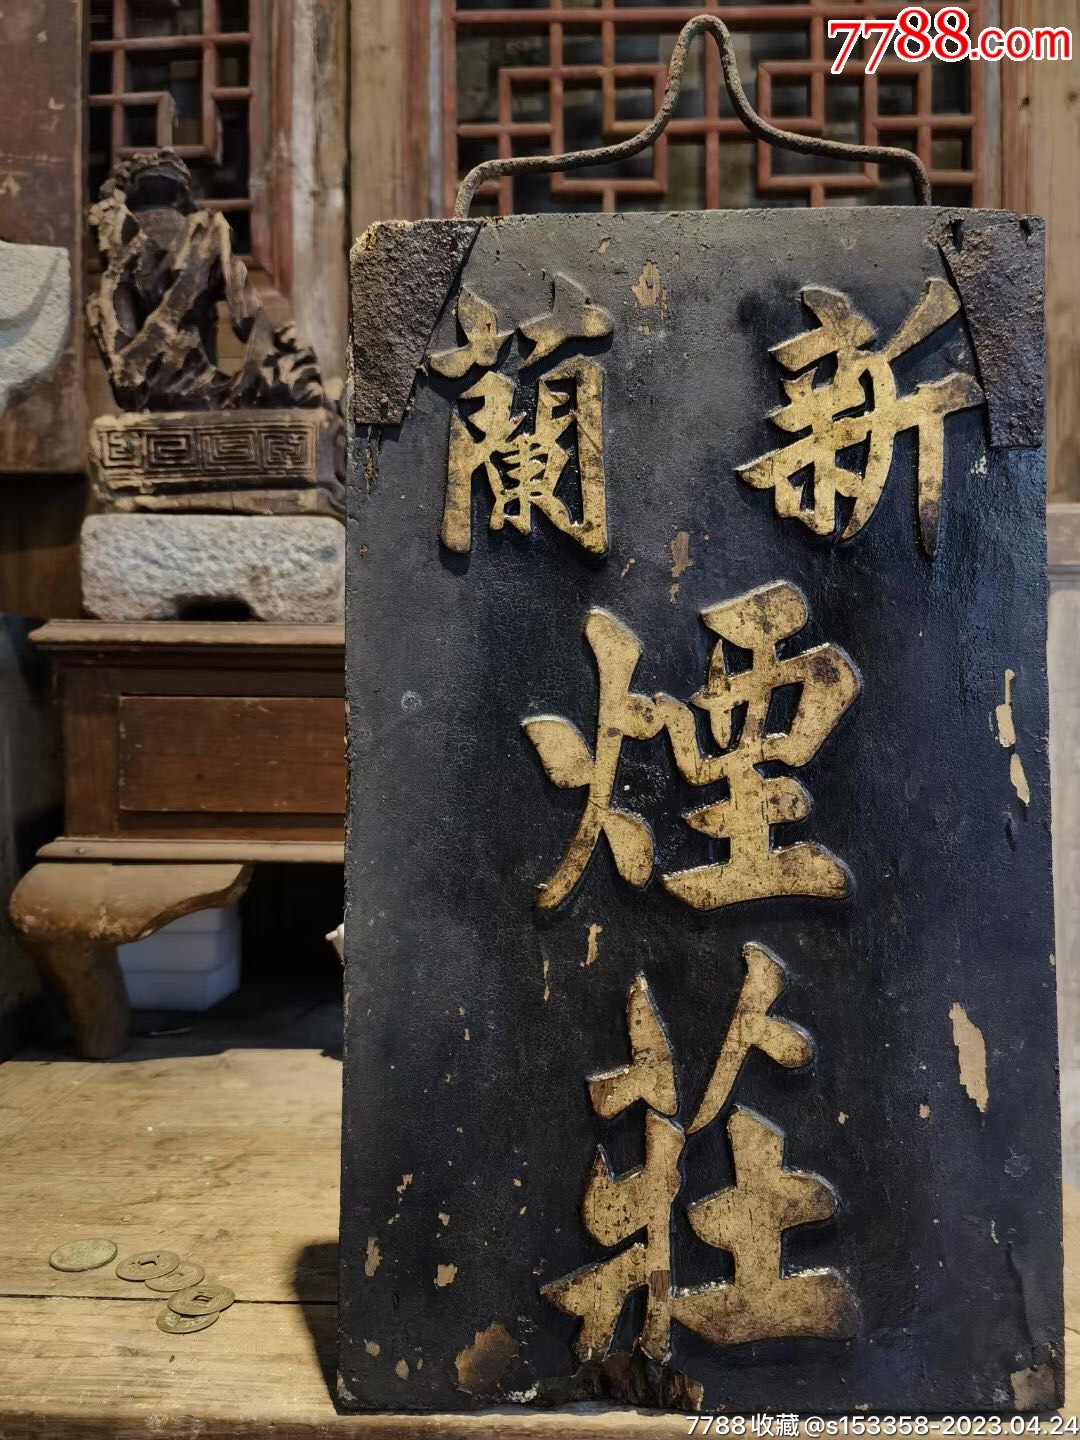 7788.com
新蘭
煙
莊
7788收藏@s153358-2023.04.24